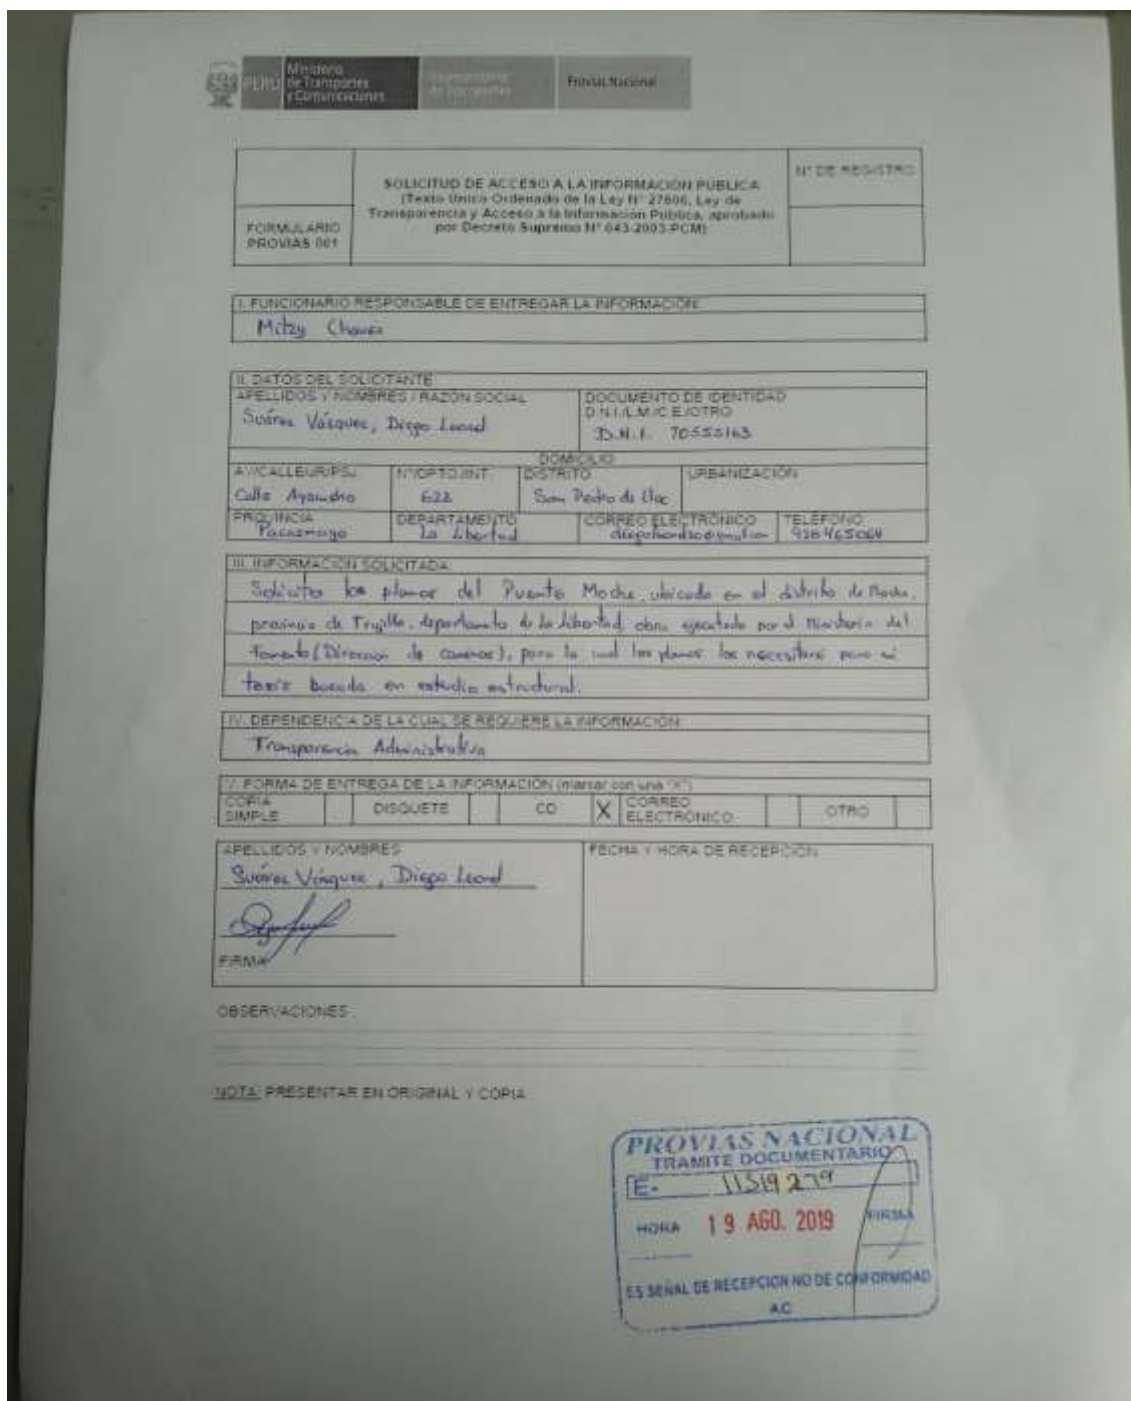 PERÚ
Ministerio
de Transportes
y Comunicaciones
de Transportes
Provias Nacional
FORMULARIO
PROVIAS 001
SOLICITUD DE ACCESO A LA INFORMACIÓN PÚBLICA
(Texto Único Ordenado de la Ley N° 27806, Ley de
Transparencia y Acceso a la Información Pública, aprobado
por Decreto Supremo N° 043-2003-PCM)
N° DE REGISTRO
I. FUNCIONARIO RESPONSABLE DE ENTREGAR LA INFORMACIÓN:
Mitzy Chavez
II. DATOS DEL SOLICITANTE:
APELLIDOS Y NOMBRES / RAZÓN SOCIAL
Suárez Vásquez, Diego Leond
DOCUMENTO DE IDENTIDAD
D.N.I./L.M./C.E./OTRO
D.N.I. 70555163
DOMICILIO
AV/CALLE/JR/PSJ.
Calle Ayacucho
N°/DPTO./INT.
622
DISTRITO
San Pedro de Lloc
URBANIZACIÓN
PROVINCIA
Pacasmayo
DEPARTAMENTO
La Libertad
CORREO ELECTRÓNICO
TELÉFONO
928465064
III. INFORMACIÓN SOLICITADA:
Solicito los planos del Puente Moche, ubicado en el distrito de Moche,
provincia de Trujillo, departamento de La Libertad, obra ejecutada por el Ministerio del
Fomento (Dirección de caminos), para lo cual los planos los necesitaré para mi
tesis basada en estudio estructural.
IV. DEPENDENCIA DE LA CUAL SE REQUIERE LA INFORMACIÓN:
Transparencia Administrativa
V. FORMA DE ENTREGA DE LA INFORMACIÓN (marcar con una "X")
COPIA
SIMPLE
DISQUETE
CD
X
CORREO
ELECTRÓNICO
OTRO
APELLIDOS Y NOMBRES
Suárez Vásquez, Diego Leond
FIRMA
FECHA Y HORA DE RECEPCIÓN
OBSERVACIONES
NOTA: PRESENTAR EN ORIGINAL Y COPIA
PROVIAS NACIONAL
TRAMITE DOCUMENTARIO
E- 11519279
HORA 19 AGO. 2019 FIRMA
ES SEÑAL DE RECEPCION NO DE CONFORMIDAD
AC